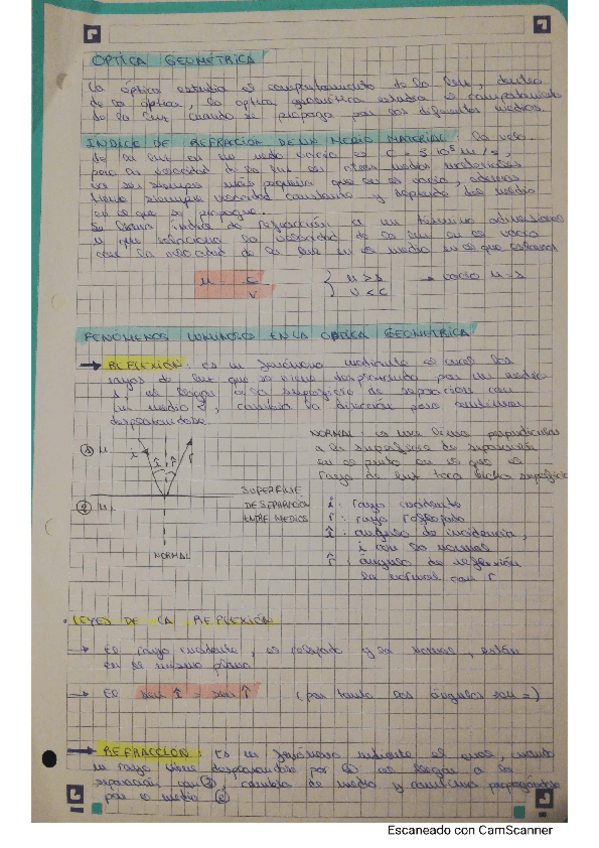 ÓPTICA GEOMÉTRICA
La óptica estudia el comportamiento de la luz, dentro
de la óptica, la optica geométrica estudia el comportamiento
de la luz cuando se propaga por los diferentes medios.
INDICE DE REFRACION DE UN MEDIO MATERIAL: La velo.
de la luz en un medio vacío es C = 3·10⁸ m/s,
para la velocidad de la luz en otros medios materiales
va ser siempre más pequeña que en el vacío, además
tiene siempre velocidad constante y depende del medio
en el que se propague.
Se llama índice de refracción a un término adimensional
n que relaciona la velocidad de la luz en el vacío
con la velocidad de la luz en el medio en el que estamos
n = c/v } n>1 v<c → vacío n=1
FENÓMENOS LUMINOSOS EN LA ÓPTICA GEOMÉTRICA
→ REFLEXIÓN: es un fenómeno mediante el cual los
rayos de luz que se viene desplazando por un medio
1, al llegar a la superficie de separación con
un medio 2, cambia la dirección para continuar
desplazandose.
① n₁ i î r̂ r
② n₂
NORMAL
SUPERFICIE
DE SEPARACIÓN
ENTRE MEDIOS
NORMAL: es una línea perpendicular
a la superficie de separación
en el punto en el que el
rayo de luz toca dicha superficie
i: rayo incidente
r: rayo reflejado
î: ángulo de incidencia,
i con la normal
r̂: ángulo de reflexión
la normal con r
· LEYES DE LA REFLEXIÓN
→ El rayo incidente, el reflejado y la normal, están
en el mismo plano
→ El sen î = sen r̂ (por tanto los ángulos son =)
→ REFRACCIÓN: Es un fenómeno mediante el cual, cuando
un rayo viene desplazandose por ① al llegar a la
separación con ②, cambia de medio y continua propagándose
por el medio ②
Escaneado con CamScanner